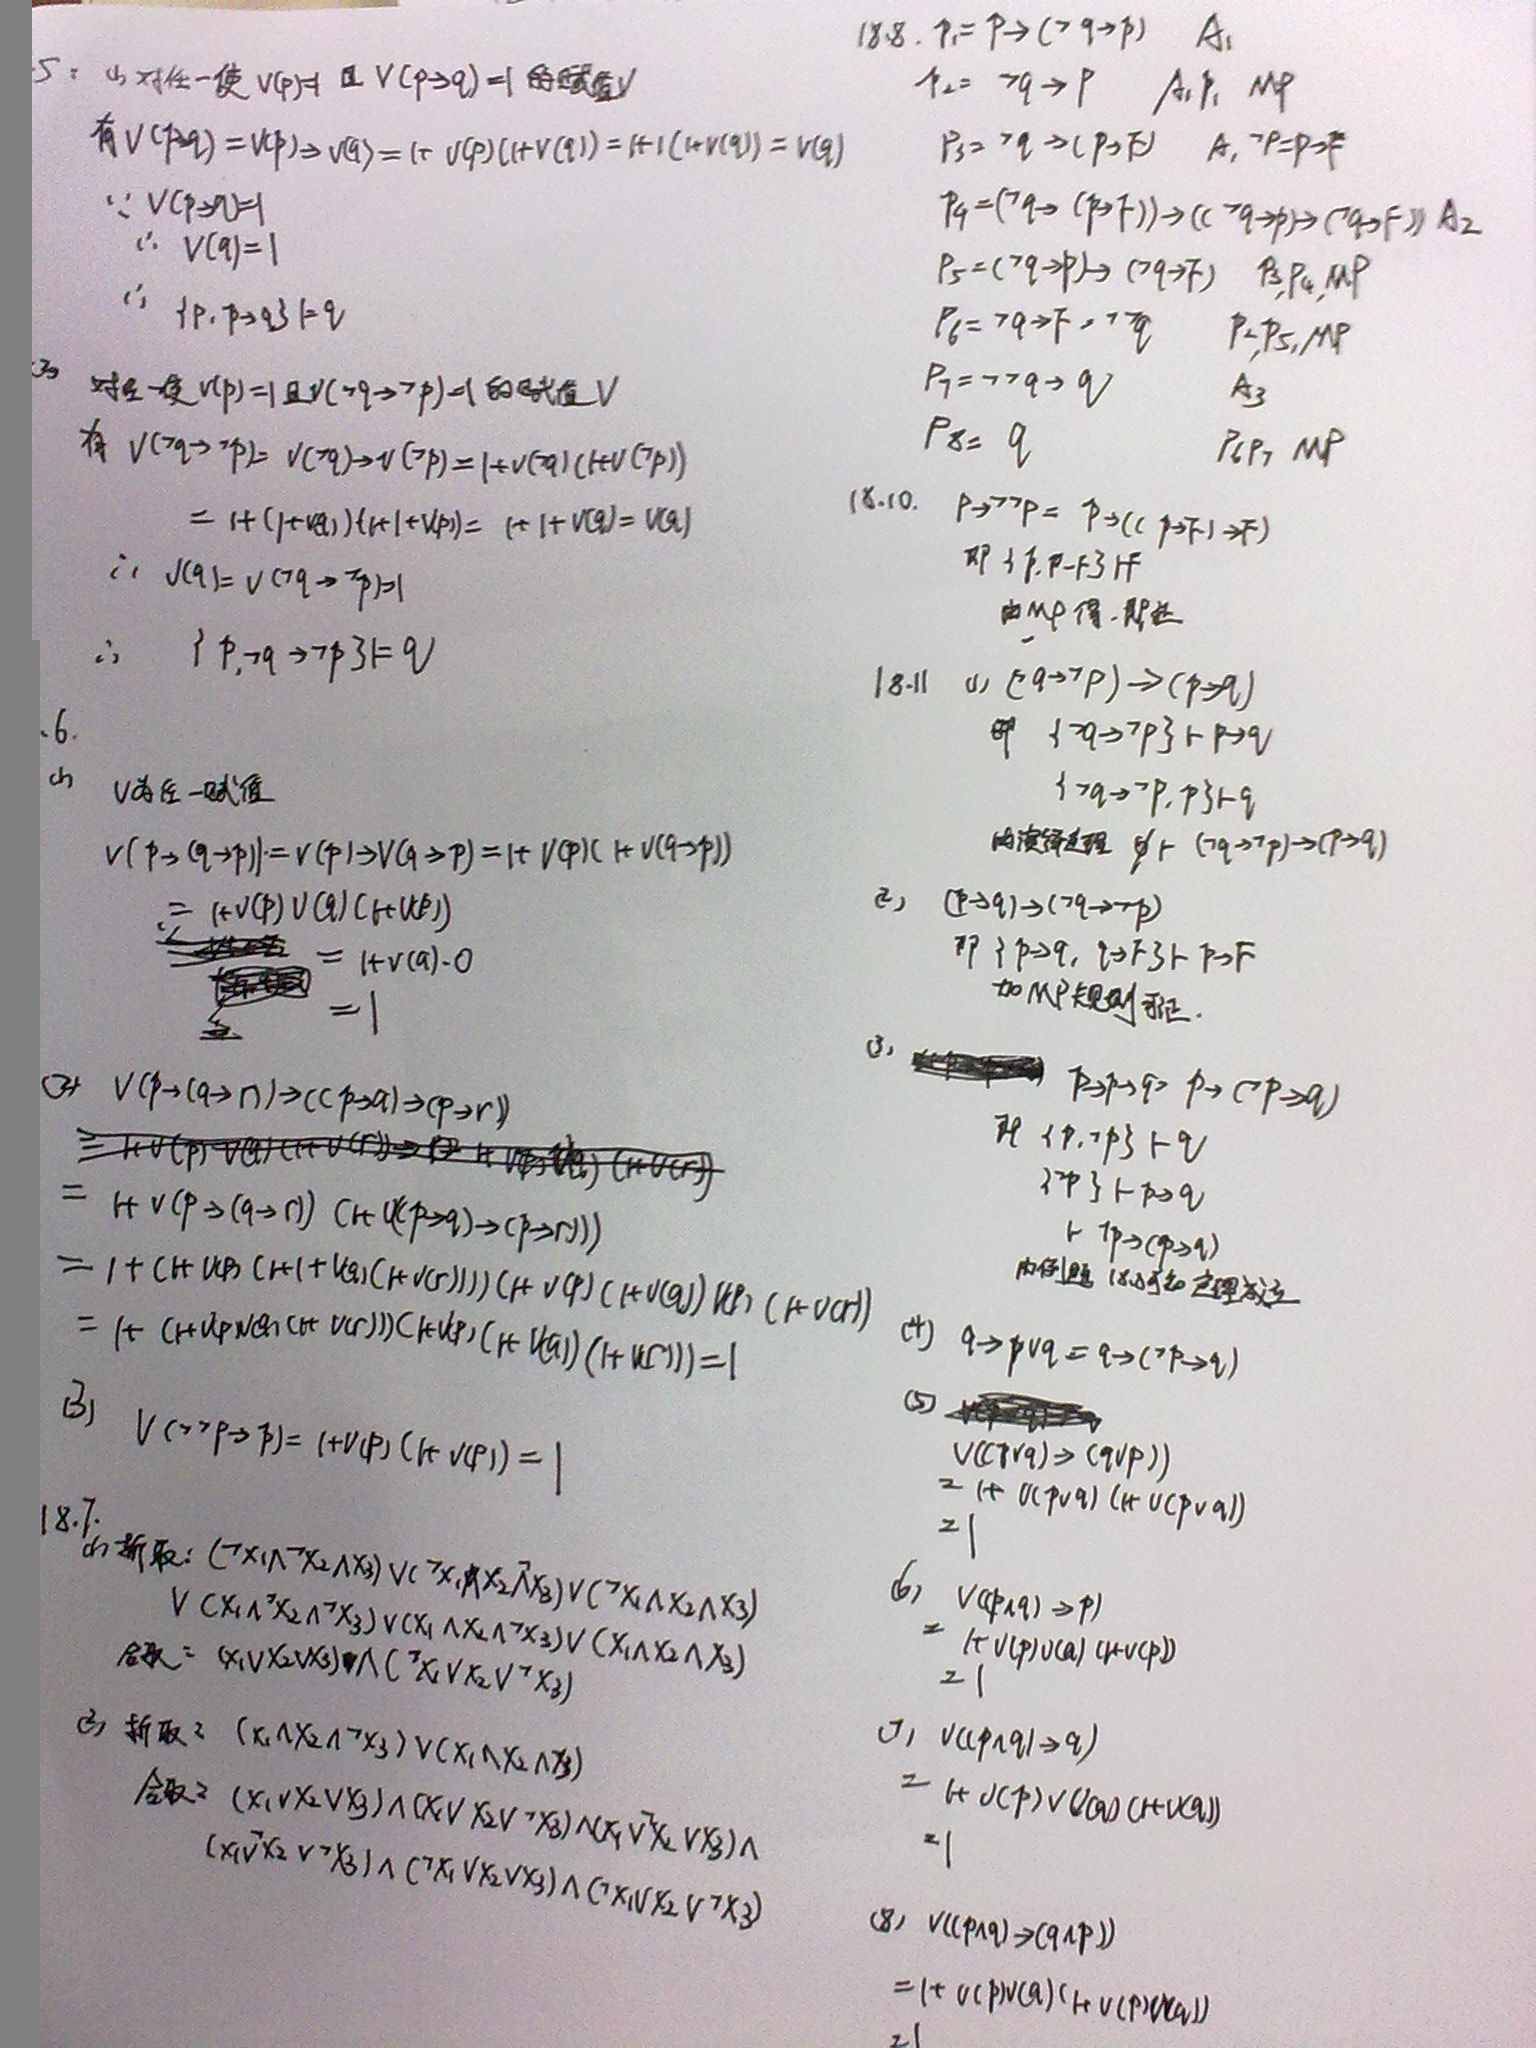 .5: (1) 对任一使 V(p)=1 且 V(p→q)=1 的赋值V
有 V(p→q) = V(p)→V(q) = 1+ V(p)(1+V(q)) = 1+1(1+V(q)) = V(q)
∵ V(p→q)=1
∴ V(q)=1
∴ {p, p→q}⊨q
对任一使V(p)=1且V(¬q→¬p)=1的赋值V
有 V(¬q→¬p)= V(¬q)→V(¬p)=1+V(¬q)(1+V(¬p))
= 1+(1+V(q))(1+1+V(p))= 1+1+V(q)= V(q)
∴ V(q)= V(¬q→¬p)=1
∴ {p,¬q→¬p}⊨q
.6.
(1) V为任一赋值
V(p→(q→p))=V(p)→V(q→p)=1+V(p)(1+V(q→p))
= 1+V(p)V(q)(1+V(p))
= 1+V(q)·0
= 1
(2) V(p→(q→r))→((p→q)→(p→r))
= 1+V(p→(q→r))(1+V((p→q)→(p→r)))
= 1+(1+V(p)(1+1+V(q)(1+V(r))))(1+V(p)(1+V(q))V(p)(1+V(r))
= 1+(1+V(p)V(q)(1+V(r)))(1+V(p)(1+V(q))(1+V(r)))=1
(3) V(¬¬p→p)=1+V(p)(1+V(p))=1
18.7.
(1) 析取: (¬x₁∧¬x₂∧x₃)∨(¬x₁∧x₂∧¬x₃)∨(¬x₁∧x₂∧x₃)
∨(x₁∧¬x₂∧¬x₃)∨(x₁∧x₂∧¬x₃)∨(x₁∧x₂∧x₃)
合取: (x₁∨x₂∨x₃)∧(¬x₁∨x₂∨¬x₃)
(2) 析取: (x₁∧x₂∧¬x₃)∨(x₁∧x₂∧x₃)
合取: (x₁∨x₂∨x₃)∧(x₁∨x₂∨¬x₃)∧(x₁∨¬x₂∨x₃)∧
(x₁∨¬x₂∨¬x₃)∧(¬x₁∨x₂∨x₃)∧(¬x₁∨x₂∨¬x₃)
18.8. p₁= p→(¬q→p) A₁
p₂= ¬q→p A,p₁ MP
p₃= ¬q→(p→F) A,¬p=p→F
p₄=(¬q→(p→F))→((¬q→p)→(¬q→F)) A₂
p₅=(¬q→p)→(¬q→F) p₃,p₄,MP
p₆= ¬q→F=¬¬q p₂,p₅,MP
p₇= ¬¬q→q A₃
p₈= q p₆p₇ MP
18.10. p→¬¬p= p→((p→F)→F)
即 {p,p→F}⊢F
由MP得.
18.11 (1) (¬q→¬p)→(p→q)
即 {¬q→¬p}⊢p→q
{¬q→¬p,p}⊢q
由演绎定理 ∅⊢(¬q→¬p)→(p→q)
2) (p→q)→(¬q→¬p)
即 {p→q, q→F}⊢p→F
如MP规则可证.
(3) p→p→q= p→(¬p→q)
即 {p,¬p}⊢q
{¬p}⊢p→q
⊢¬p→(p→q)
由例题18. 可知定理成立
(4) q→p∨q=q→(¬p→q)
(5)
V((p∨q)→(q∨p))
= 1+V(p∨q)(1+V(p∨q))
=1
(6) V((p∧q)→p)
= 1+V(p)V(q)(1+V(p))
=1
(7) V((p∧q)→q)
= 1+V(p)V(q)(1+V(q))
=1
(8) V((p∧q)→(q∧p))
=1+V(p)V(q)(1+V(p)V(q))
=1